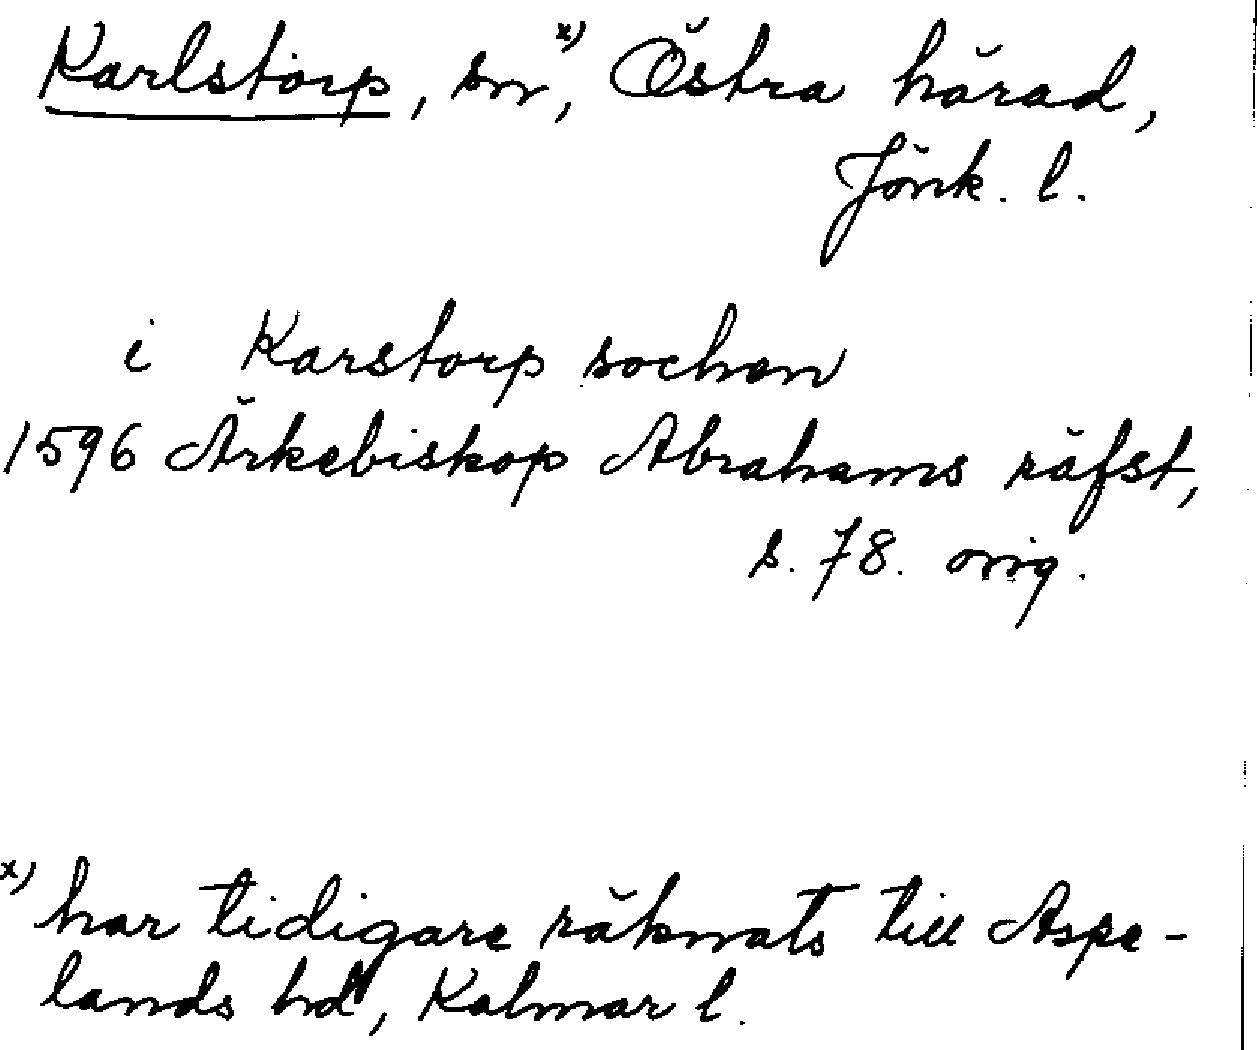 Karlstorp, sn,x) Östra härad,
Jönk. l.
i Karstorp sochen
1596 Ärkebiskop Abrahams räfst,
s. 78. orig.
x) har tidigare räknats till Aspe-
lands hd, Kalmar l.